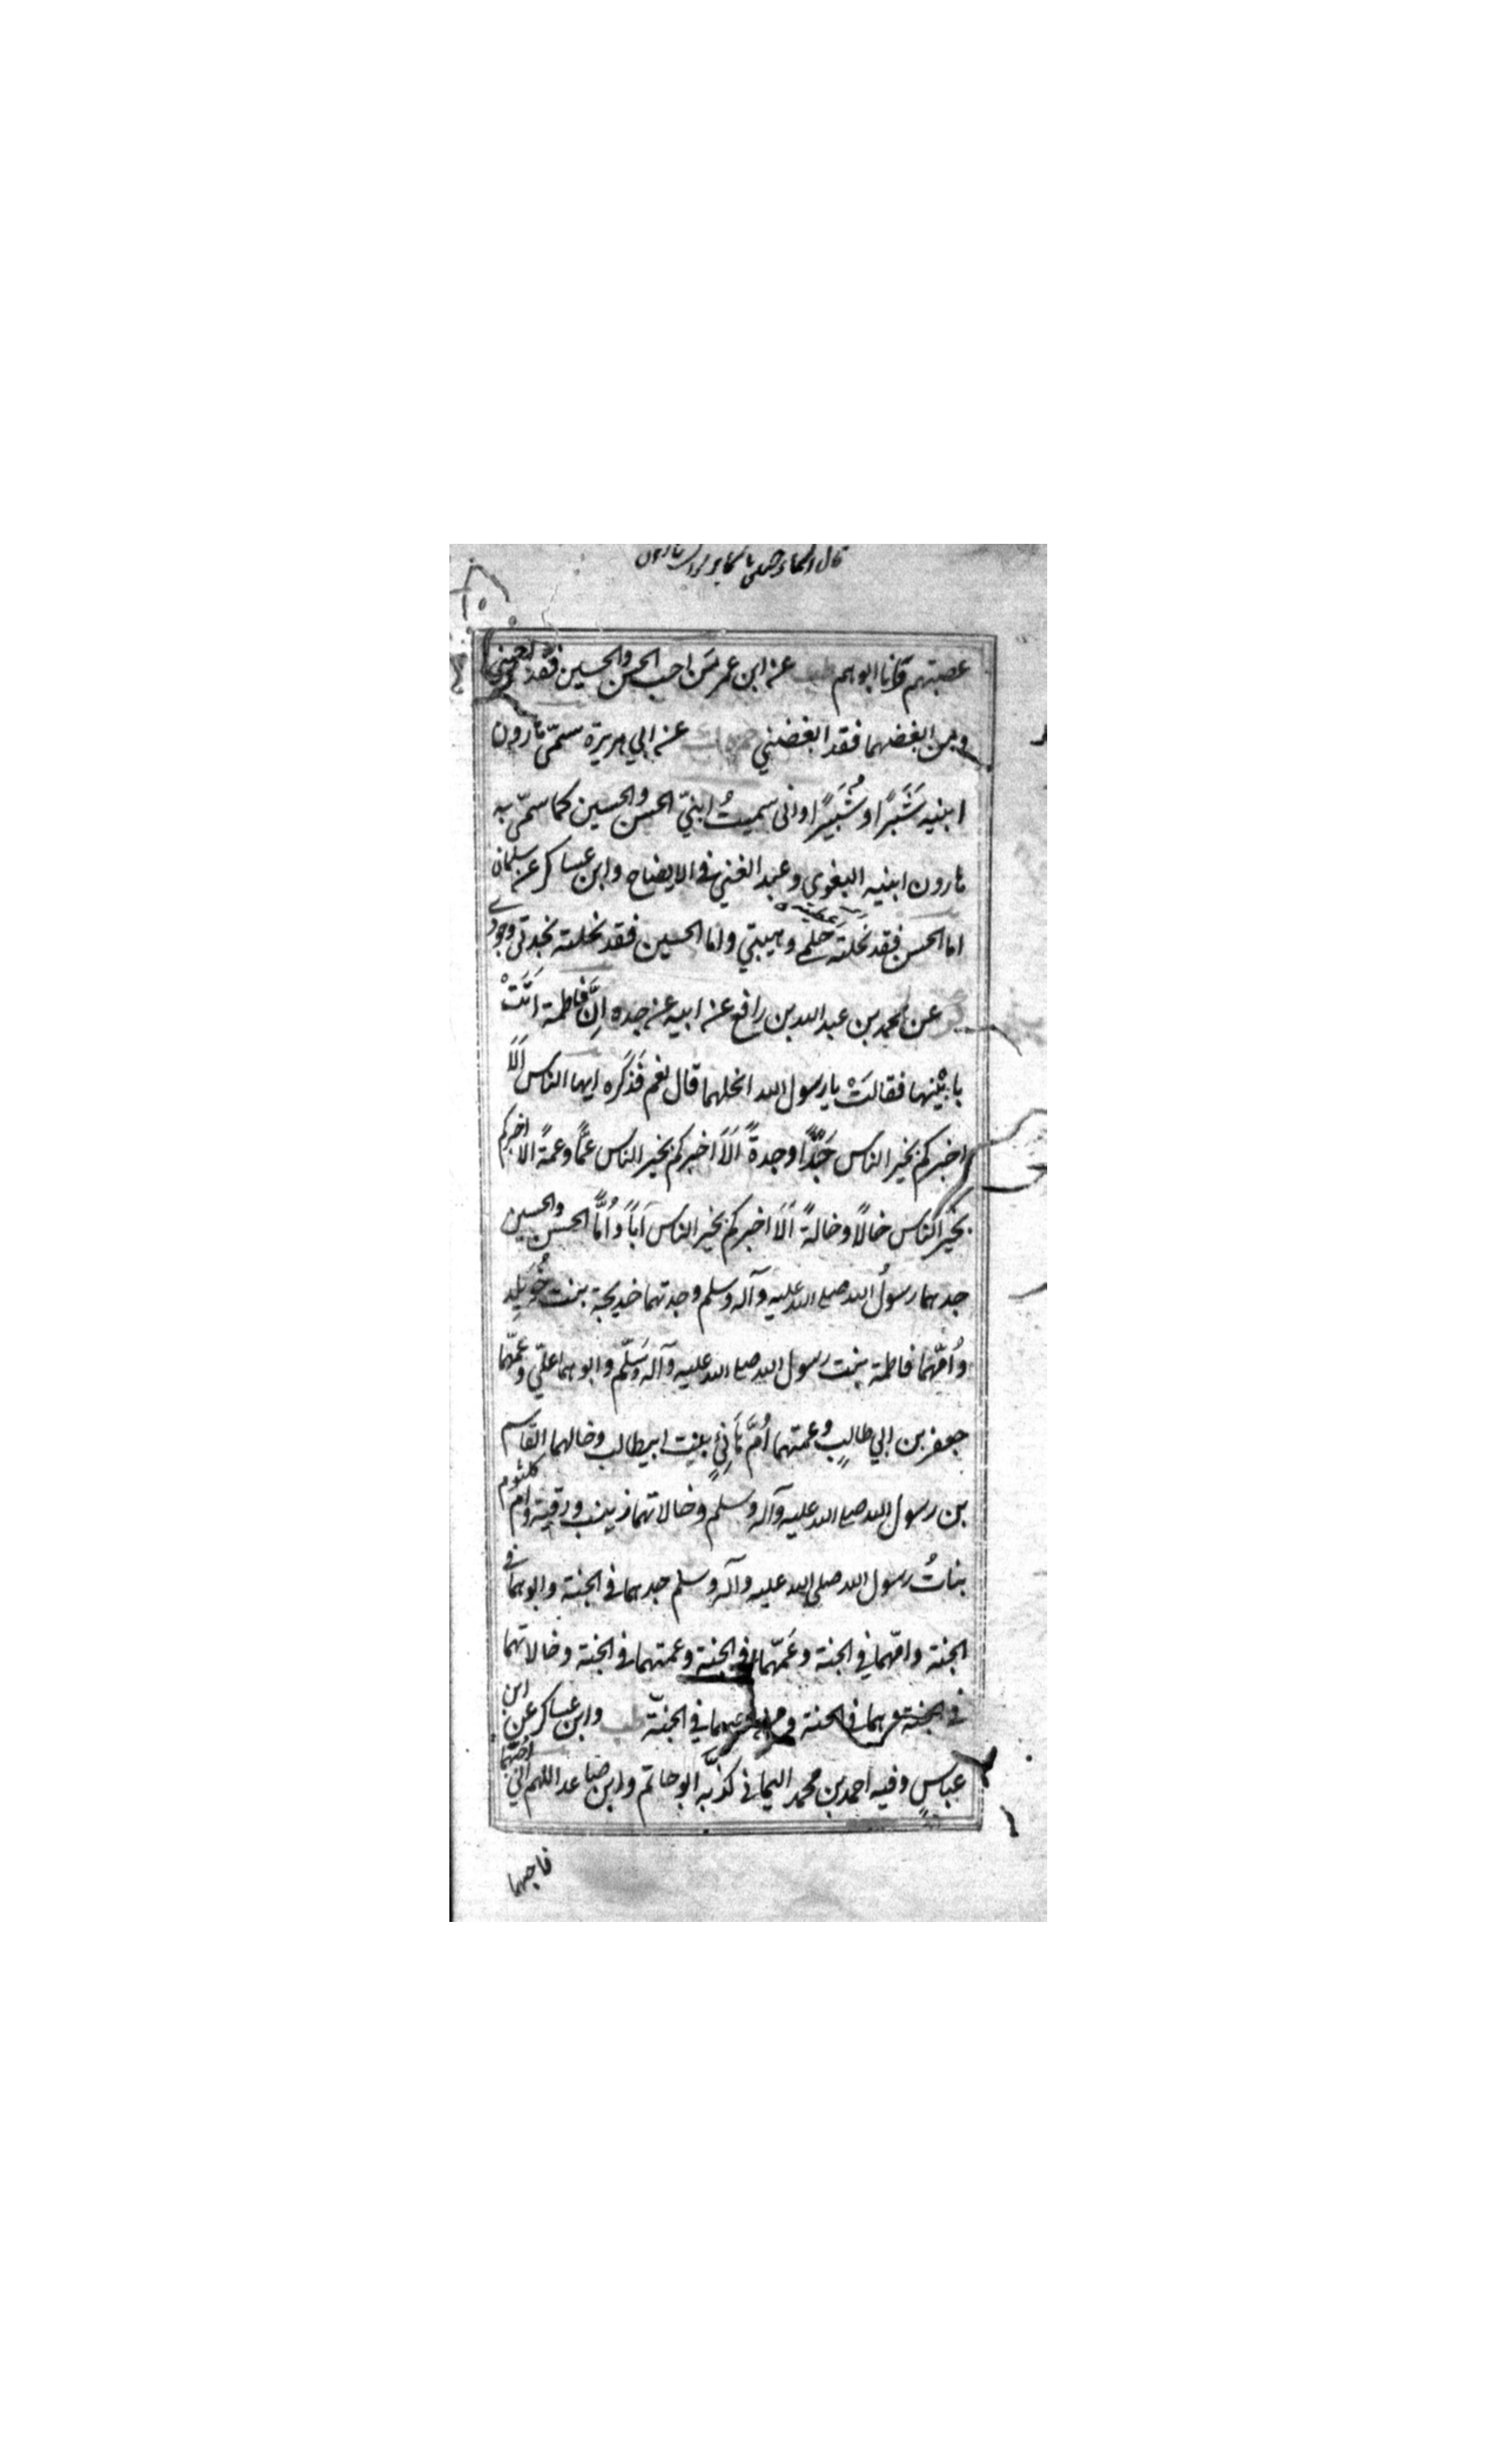 عصبتهم وَانا ابوهم طب عن ابن عمر مَن احب الحسن والحسين فقد احبني
ومن ابغضهما فقد ابغضني عن ابي هريرة سمّى هارون
ابنيه شَبَّرًا وشُبَيْرًا وانى سميتُ ابنيّ الحسن والحسين كما سمّى به
هارون ابنيه البغوي وعبد الغني في الايضاح وابن عساكر عن سلمان
اما الحسن فقد نحلته حلمي وهيبتي واما الحسين فقد نحلته نجدتى وجودى
كر عن محمد بن عبد الله بن رافع عن ابيه عن جده اِنَّ فاطمة اَتَتْ
بابْنيها فقالَتْ يا رسول الله انحلهما قال نعم فَذَكَره ايها الناس اَلَا
اخبركم بخير الناس جَدًّا وجدةً اَلَا اخبركم بخير الناس عمًّا وعمةً الا اخبركم
بخير الناس خالًا وخالةً اَلَا اخبركم بخير الناس اَبًا واُمًّا الحسن والحسين
جدهما رسولُ الله صلى الله عليه وآله وسلم وجدتهما خديجة بنت خُوَيلِد
واُمّهما فاطمة بنت رسول الله صلى الله عليه وآله وسَلّم وابوهما علىّ وعمّهما
جعفر بن ابي طالبٍ وعمتهما اُمّ هَانِئٍ بنت ابيطالب وخالهما القاسم
بن رسول الله صلى الله عليه وآله وسلم وخالاتهما زينب ورقية وام كلثوم
بناتُ رسول الله صلى الله عليه وآله وسلم جدهما في الجنة وابوهما في
الجنة وامّهما في الجنة وعَمّهما في الجنة وعمتهما في الجنة وخالاتهما
في الجنة وهما في الجنة ومن احبهما في الجنّة طب وابن عساكر عن ابن
عباسٍ وفيه احمد بن محمد اليمانى كذّبَه ابو حاتم وابن صاعد اللهم انّي اُحبّهما
فاحبهما